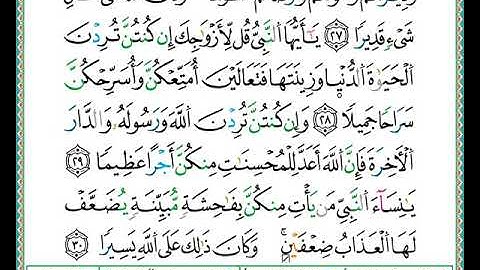 شَىْءٍ قَدِيرًا ٢٧ يَـٰٓأَيُّهَا ٱلنَّبِىُّ قُل لِّأَزْوَٰجِكَ إِن كُنتُنَّ تُرِدْنَ
ٱلْحَيَوٰةَ ٱلدُّنْيَا وَزِينَتَهَا فَتَعَالَيْنَ أُمَتِّعْكُنَّ وَأُسَرِّحْكُنَّ
سَرَاحًا جَمِيلًا ٢٨ وَإِن كُنتُنَّ تُرِدْنَ ٱللَّهَ وَرَسُولَهُۥ وَٱلدَّارَ
ٱلْأَخِرَةَ فَإِنَّ ٱللَّهَ أَعَدَّ لِلْمُحْسِنَـٰتِ مِنكُنَّ أَجْرًا عَظِيمًا ٢٩
يَـٰنِسَآءَ ٱلنَّبِىِّ مَن يَأْتِ مِنكُنَّ بِفَـٰحِشَةٍ مُّبَيِّنَةٍ يُضَـٰعَفْ
لَهَا ٱلْعَذَابُ ضِعْفَيْنِ ۚ وَكَانَ ذَٰلِكَ عَلَى ٱللَّهِ يَسِيرًا ٣٠